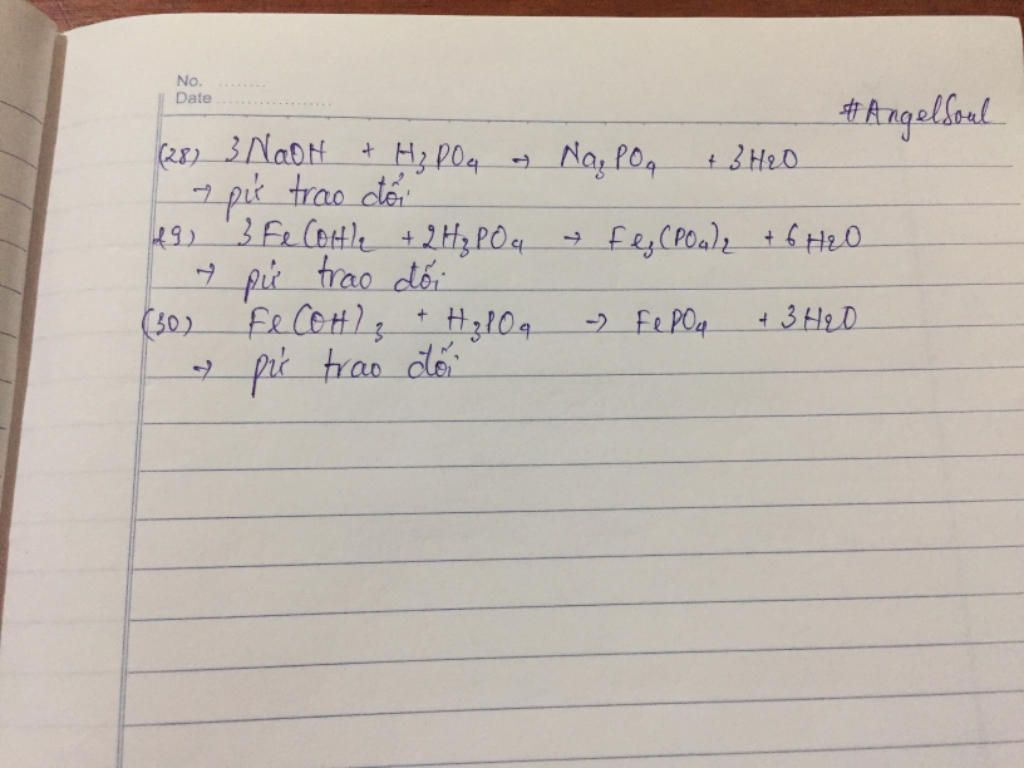 No. ........
Date ....................
#AngelSoul
(28) 3NaOH + H₃PO₄ → Na₃PO₄ + 3H₂O
→ pứ trao đổi
29) 3Fe(OH)₂ + 2H₃PO₄ → Fe₃(PO₄)₂ + 6H₂O
→ pứ trao đổi
(30) Fe(OH)₃ + H₃PO₄ → FePO₄ + 3H₂O
→ pứ trao đổi